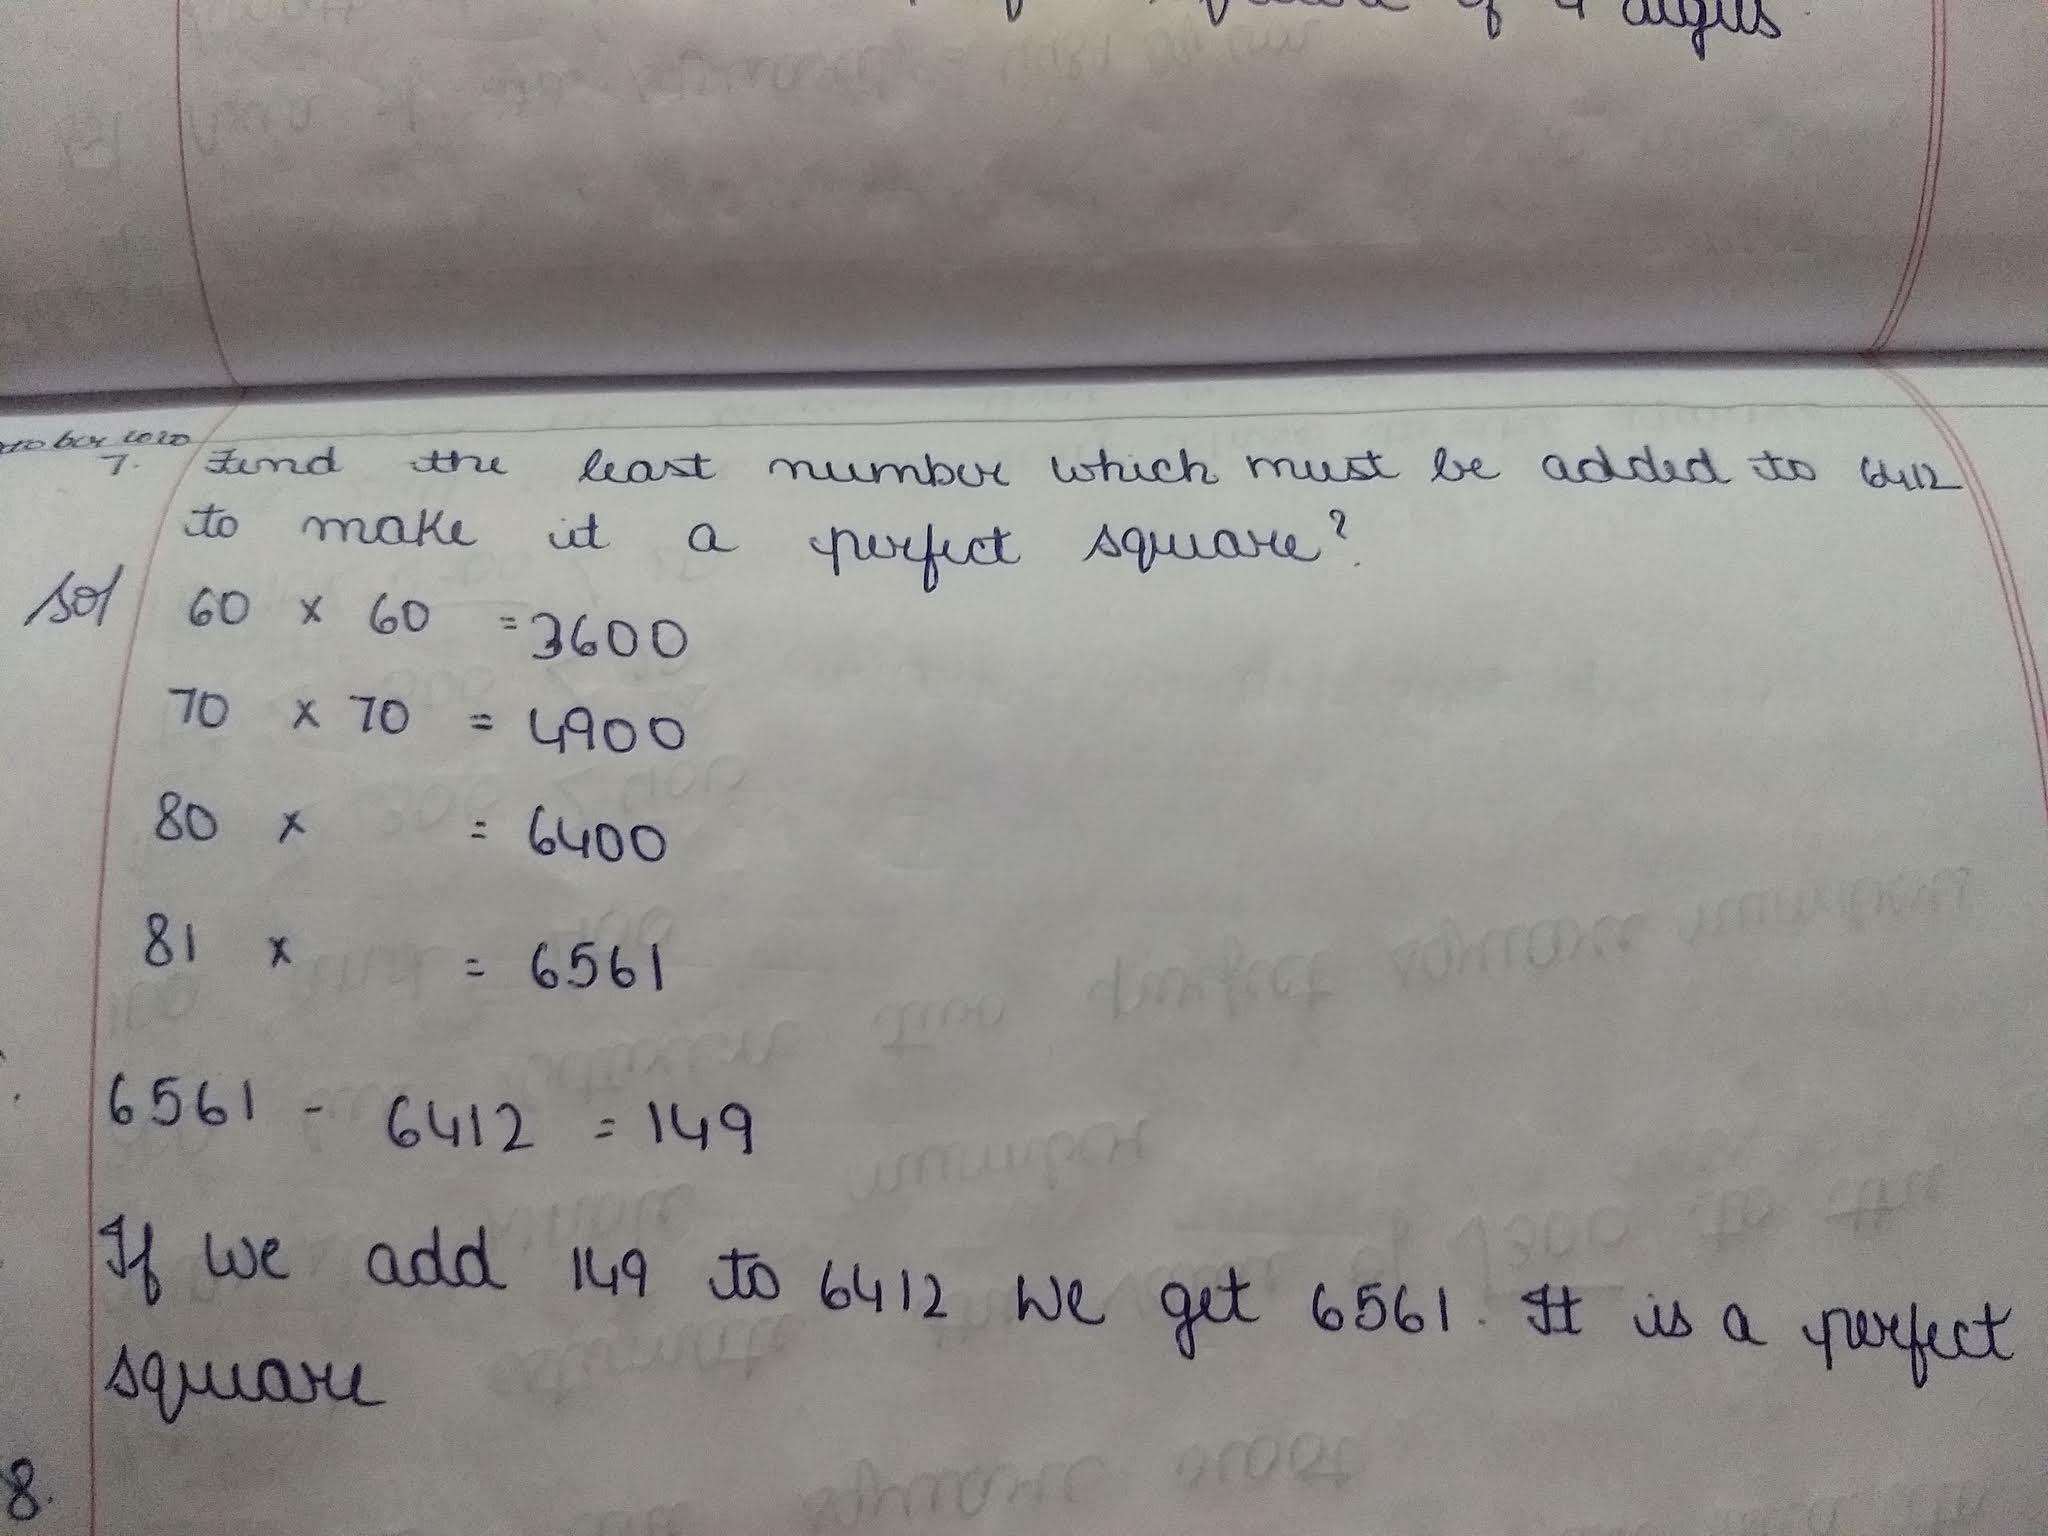 of 4 digits
7. Find the least number which must be added to 6412
to make it a perfect square?
Sol 60 x 60 = 3600
70 x 70 = 4900
80 x = 6400
81 x = 6561
6561 - 6412 = 149
If we add 149 to 6412 we get 6561. It is a perfect
square
8.